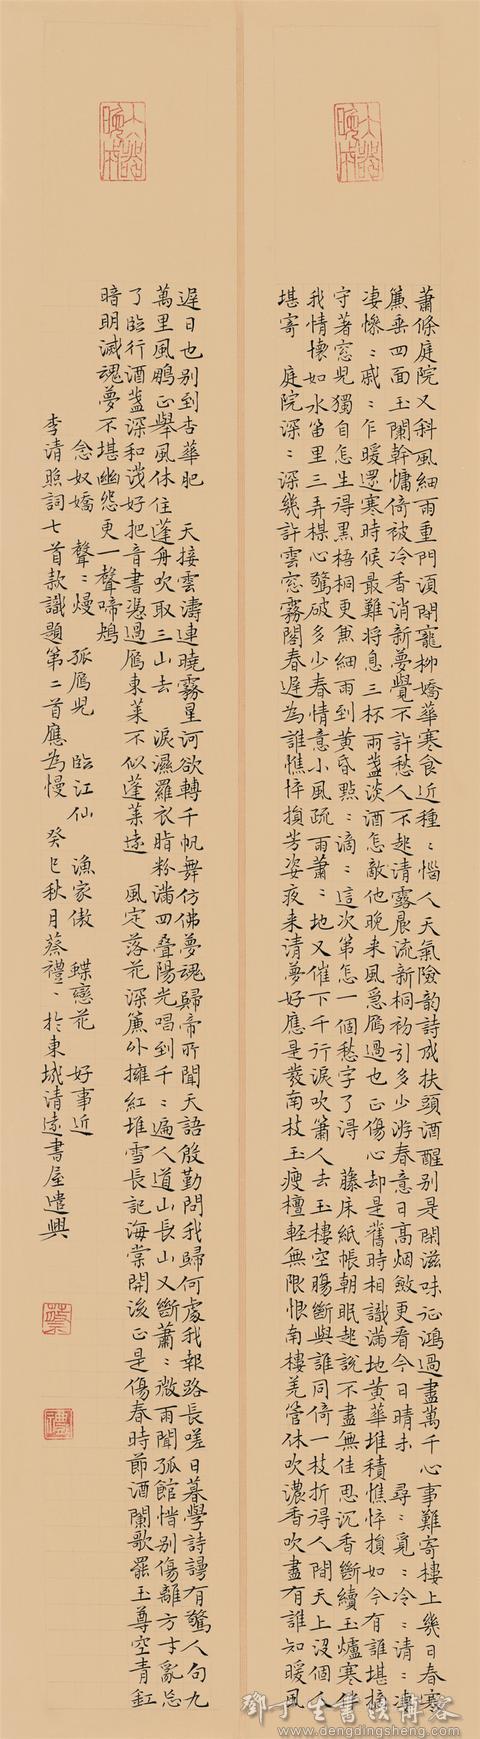 大器晚成
蕭條庭院又斜風細雨重門須閉寵柳嬌華寒食近種〻惱人天氣險韵詩成扶頭酒醒別是閑滋味征鴻過盡萬千心事難寄樓上幾日春寒
簾垂四面玉闌幹慵倚被冷香消新夢覺不許愁人不起清露晨流新桐初引多少游春意日高烟斂更看今日晴未 尋〻覓〻冷〻清〻凄
凄慘〻戚〻乍暖還寒時候最難將息三杯兩盞淡酒怎敵他晚来風急雁過也正傷心却是舊時相識滿地黃華堆積憔悴損如今有誰堪摘
守著窓兒獨自怎生得黑梧桐更兼細雨到黃昏點〻滴〻這次第怎一個愁字了得 藤床紙帳朝眠起說不盡無佳思沉香斷續玉爐寒伴
我情懷如水笛里三弄楳心驚破多少春情意小風疏雨蕭〻地又催下千行淚吹簫人去玉樓空腸斷與誰同倚一枝折得人間天上沒個人
堪寄 庭院深〻深幾許雲窓霧閣春遲為誰憔悴損芳姿夜来清夢好應是發南枝玉瘦檀輕無限恨南樓羌管休吹濃香吹盡有誰知暖風
大器晚成
遲日也別到杏華肥 天接雲濤連曉霧星河欲轉千帆舞仿佛夢魂歸帝所聞天語殷勤問我歸何處我報路長嗟日暮學詩謾有驚人句九
萬里風鵬正舉風休住蓬舟吹取三山去 淚濕羅衣脂粉滿四叠陽光唱到千〻遍人道山長山又斷蕭〻微雨聞孤館惜別傷離方寸亂忘
了臨行酒盞深和淺好把音書憑過雁東萊不似蓬萊遠 風定落花深簾外擁紅堆雪長記海棠開後正是傷春時節酒闌歌罷玉尊空青缸
暗明滅魂夢不堪幽怨更一聲啼鴂
念奴嬌 聲〻熳 孤雁兒 臨江仙 漁家傲 蝶戀花 好事近
李清照詞七首款識題第二首應為慢 癸巳秋月蔡禮〻於東城清遠書屋遣興
蔡
禮
鄧丁生書法博客
www.dengdingsheng.com